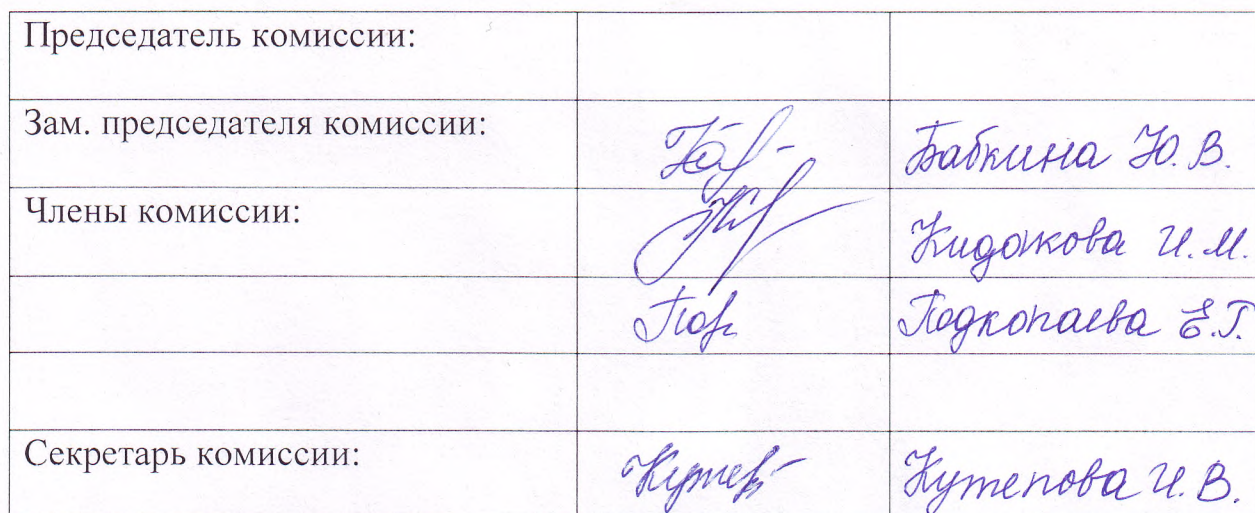 Председатель комиссии:
Зам. председателя комиссии: Бабкина Ю. В.
Члены комиссии: Кидакова И. М.
Подкопаева Е. Г.
Секретарь комиссии: Кутепова И. В.